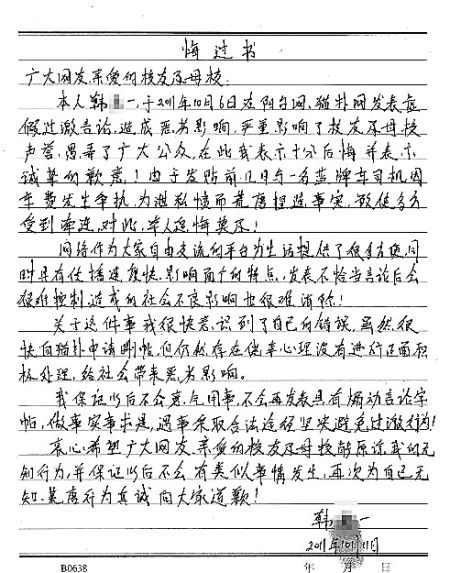 悔过书
广大网友、亲爱的校友及母校:
本人韩 一,于2011年10月6日在阳台网、猫扑网发表虚
假过激言论,造成恶劣影响,严重影响了校友及母校
声誉,愚弄了广大公众,在此我表示十分后悔并表示
诚挚的歉意!由于发帖前几日与一名蓝牌车司机因
车费发生争执,为泄私愤而荒唐捏造事实,致使多方
受到牵连,对此,本人追悔莫及!
网络作为大家自由交流的平台为生活提供了很多方便,同
时具有传播速度快、影响面广的特点,发表不恰当言论后会
很难控制,造成的社会不良影响也很难消除!
关于这件事我很快意识到了自己的错误,虽然很
快向猫扑申请删帖,但仍然存在侥幸心理没有进行正面积
极处理,给社会带来恶劣影响。
我保证以后不会意气用事,不会再发表具有煽动言论字
帖,做事实事求是,遇事采取合法途径坚决避免过激行为!
衷心希望广大网友、亲爱的校友及母校能原谅我的无
知行为,并保证以后不会有类似事情发生,再次为自己无
知、荒唐行为真诚向大家道歉!
韩 一
2011年10月11日
B0638 年 月 日